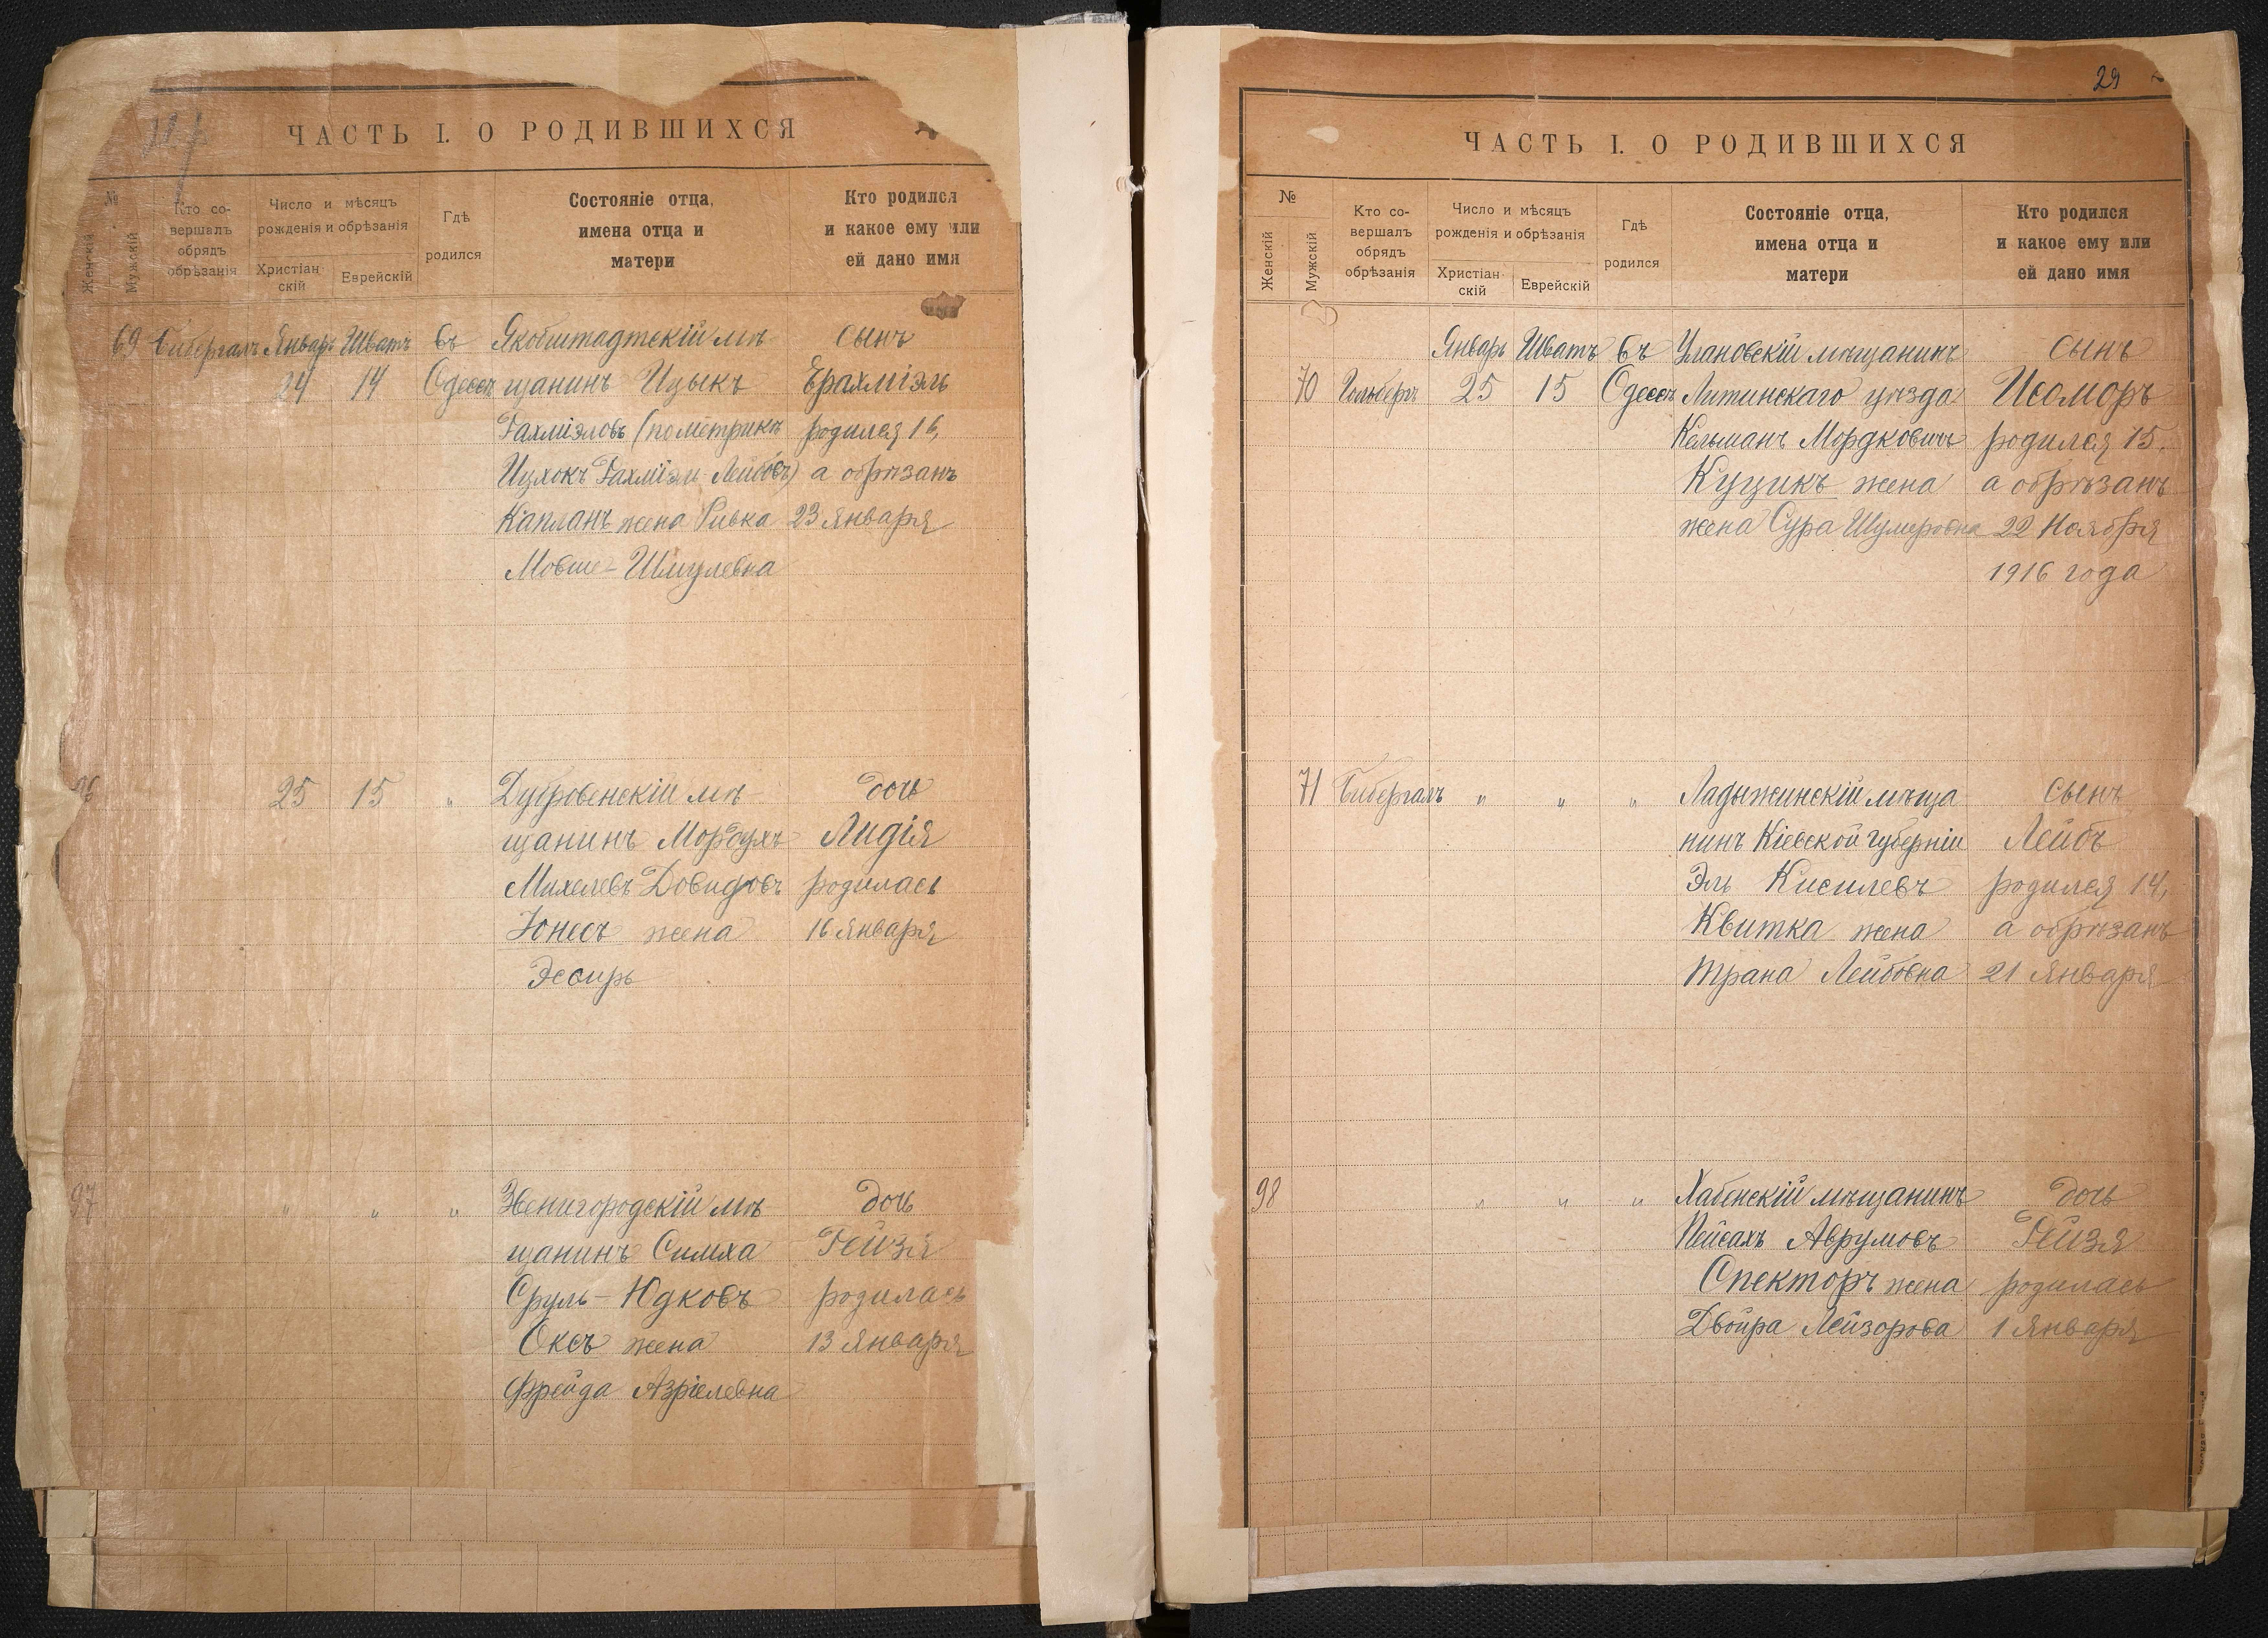 ЧАСТЬ I. О РОДИВШИХСЯ
№
Женскій
Мужскій
Кто со-
вершалъ
обрядъ
обрѣзанія
Число и мѣсяцъ
рожденія и обрѣзанія
Христіан
скій
Еврейскій
Гдѣ
родился
Состояніе отца,
имена отца и
матери
Кто родился
и какое ему или
ей дано имя
69 Бибергалъ Январь Шватъ въ Якобштадтскій мѣ сынъ
24 14 Одессѣ щанинъ Ицыкъ Ерахміэль
Рахміэловъ (по метрикѣ родился 16,
Ицхокъ Рахміэль Лейбовъ) а обрѣзанъ
Капланъ жена Ривка 23 Января
Мовше-Шмулевна
96 25 15 " Дубровенскій мѣ- дочь
щанинъ Мордухъ Лидія
Михелевъ Довидовъ родилась
Юнесъ жена 16 Января
Эсѳирь
97 " " " Звенигородскій мѣ дочь
щанинъ Симха Рейзя
Сруль-Юдковъ родилась
Оксъ жена 13 Января
Фрейда Азріелевна
29
ЧАСТЬ I. О РОДИВШИХСЯ
№
Женскій
Мужскій
Кто со-
вершалъ
обрядъ
обрѣзанія
Число и мѣсяцъ
рожденія и обрѣзанія
Христіан
скій
Еврейскій
Гдѣ
родился
Состояніе отца,
имена отца и
матери
Кто родился
и какое ему или
ей дано имя
Январь Шватъ въ Улановскій мѣщанинъ сынъ
70 Гольбергъ 25 15 Одессѣ Литинскаго уѣзда Исоморъ
Кельманъ Мордковичъ родился 15,
Куцикъ жена а обрѣзанъ
жена Сура 22 Ноября
1916 года
71 Бибергалъ " " " Ладыжинскій мѣща сынъ
нинъ Кіевской губерніи Лейбъ
Эль Кисилевъ родился 14,
Квитка жена а обрѣзанъ
Трана Лейбовна 21 Января
98 " " " Хабенскій мѣщанинъ дочь
Пейсахъ Аврумовъ Рейзя
Спекторъ жена родилась
Двойра Лейзорова 1 Января